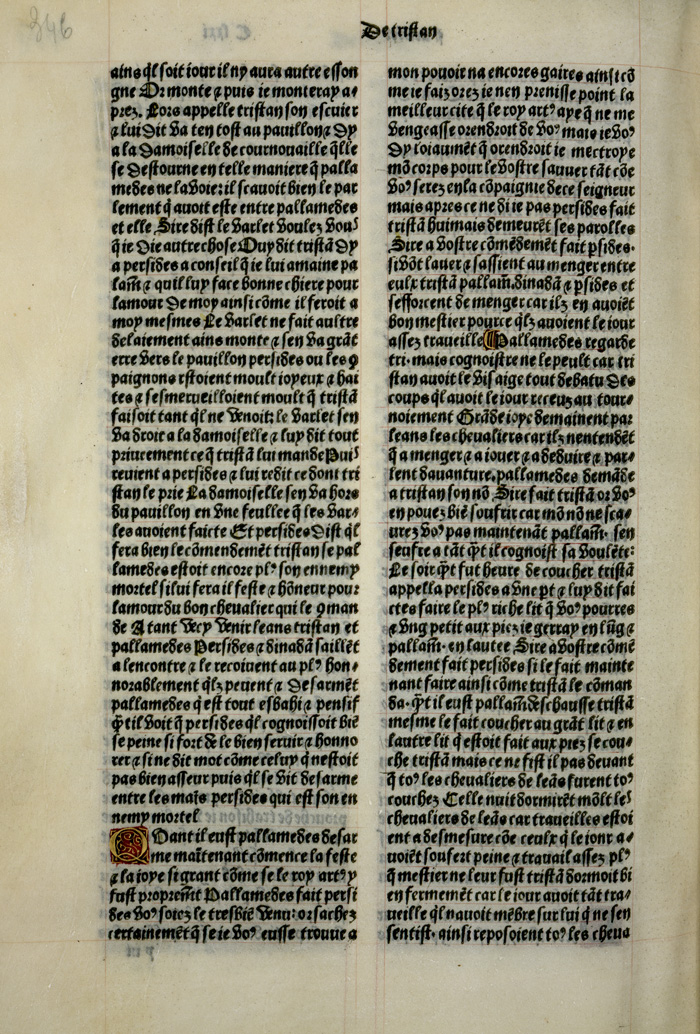 346
De tristan
ains ql̃ soit iour il ny aura autre esson
gne Or monte ⁊ puis ie monteray a⸗
prez. Lors appelle tristan son escuier
⁊ lui dit va ten tost au pauillon ⁊ dy
a la damoiselle de cournouaille q̃lle
se destourne en telle maniere q̃ palla
medes ne la voie: il scauoit bien le par
lement q̃ auoit este entre pallamedes
et elle Sire dist le varlet voulez vous
q̃ ie die autre chose Ouy dit tristã dy
a persides a conseil q̃ ie lui amaine pa
lam̃. ⁊ quil luy face bonne chiere pour
lamour de moy ainsi cõme il feroit a
moy mesmes Le varlet ne fait aultre
delaiement ains monte ⁊ sen va grãt
erre vers le pauillon persides ou les ꝯ
paignons estoient moult ioyeux ⁊ hai
tes ⁊ sesmerueilloient moult q̃ tristã
faisoit tant ql̃ ne venoit: le varlet sen
va droit a la damoiselle ⁊ luy dit tout
priueement ce q̃ tristã lui mande Puis
reuient a persides ⁊ lui redit ce dont tri
stan le prie La damoiselle sen va hors
du pauillon en vne feullee q̃ les var⸗
les auoient faicte Et persides dist ql̃
fera bien le cõmendemẽt tristan se pal
lamedes estoit encore plꝰ son ennemy
mortel si lui fera il feste ⁊ hõneur pour
lamour du bon cheualier qui le ꝯman
de A tant vecy venir leans tristan et
pallamedes Persides ⁊ dinadã saillẽt
a lencontre ⁊ le recoiuent au plꝰ hon⸗
norablement ql̃z peuent ⁊ desarmẽt
pallamedes q̃ est tout esbahi ⁊ pensif
q̃t il voit q̃ persides ql̃ cognoissoit biẽ
se peine si fort de le bien seruir ⁊ honno
rer ⁊ si ne dit mot cõme celuy q̃ nestoit
pas bien asseur puis ql̃ se vit desarme
entre les mais persides qui est son en
nemy mortel
Quant il eust pallamedes desar
me maĩtenant cõmence la feste
⁊ la ioye si grant cõme se le roy artꝰ y
fust propremẽt Pallamedes fait persi
des voꝰ soiez le tresbiẽ venu: or sachez
certainemẽt q̃ se ie voꝰ eusse trouue a
mon pouoir na encores gaires ainsi cõ
me ie faiz orez ie nen prenisse point la
meilleur cite q̃ le roy artꝰ aye q̃ ne me
vengeasse orendroit de voꝰ mais ie voꝰ
dy loiaumẽt q̃ orendroit ie mectroye
mõ corps pour le vostre sauuer tãt cõe
voꝰ serez en la cõpaignie de ce seigneur
mais apres ce ne di ie pas persides fait
tristã huimais demeurẽt ses parolles
Sire a vostre cõmẽdemẽt fait p̱sides.
si võt lauer ⁊ sassient au menger entre
eulx tristã pallam̃. dinadã ⁊ p̱sides et
sefforcent de menger car ilz en auoiẽt
bon mestier pource ql̃z auoient le iour
assez traueille Pallamedes regarde
tri. mais cognoistre ne le peult car tri
stan auoit le visaige tout debatu des
coups ql̃ auoit le iour receuz au tour⸗
noiement Grãde ioye demainent par
leans les cheualiers car ilz nentendẽt
q̃ a menger ⁊ a iouer ⁊ a deduire ⁊ par⸗
lent dauanture. pallamedes demãde
a tristan son nõ Sire fait tristã or voꝰ
en pouez biẽ soufrir car mõ nõ ne sca⸗
urez voꝰ pas maintenãt pallam̃. sen
seufre a tãt q̃t il cognoist sa voulẽte:
Le soir q̃t fut heure de coucher tristã
appella persides a vne p̱t ⁊ luy dit fai
ctes faire le plꝰ riche lit q̃ voꝰ pourres
⁊ vng petit aux piez ie gerray en lũg ⁊
pallam̃. en lautee Sire a vostre cõmẽ
dement fait persides si le fait mainte
nant faire ainsi cõme tristã le cõman
da. q̃t il eust pallam̃. deschausse tristã
mesme le fait coucher au grãt lit ⁊ en
lautre lit q̃ estoit fait aux piez se cou⸗
che tristã mais ce ne fist il pas deuant
q̃ toꝰ les cheualiers de leãs furent toꝰ
couchez Celle nuit dormirẽt mõlt les
cheualiers de leãs car traueilles estoi
ent a desmesure cõe ceulx q̃ le iour a⸗
uoiẽt soufert peine ⁊ trauail assez plꝰ
q̃ mestier ne leur fust tristã dormoit bi
en fermemẽt car le iour auoit tãt tra⸗
ueille ql̃ nauoit mẽbre sur lui q̃ ne sen
sentist. ainsi reposoient toꝰ les cheua